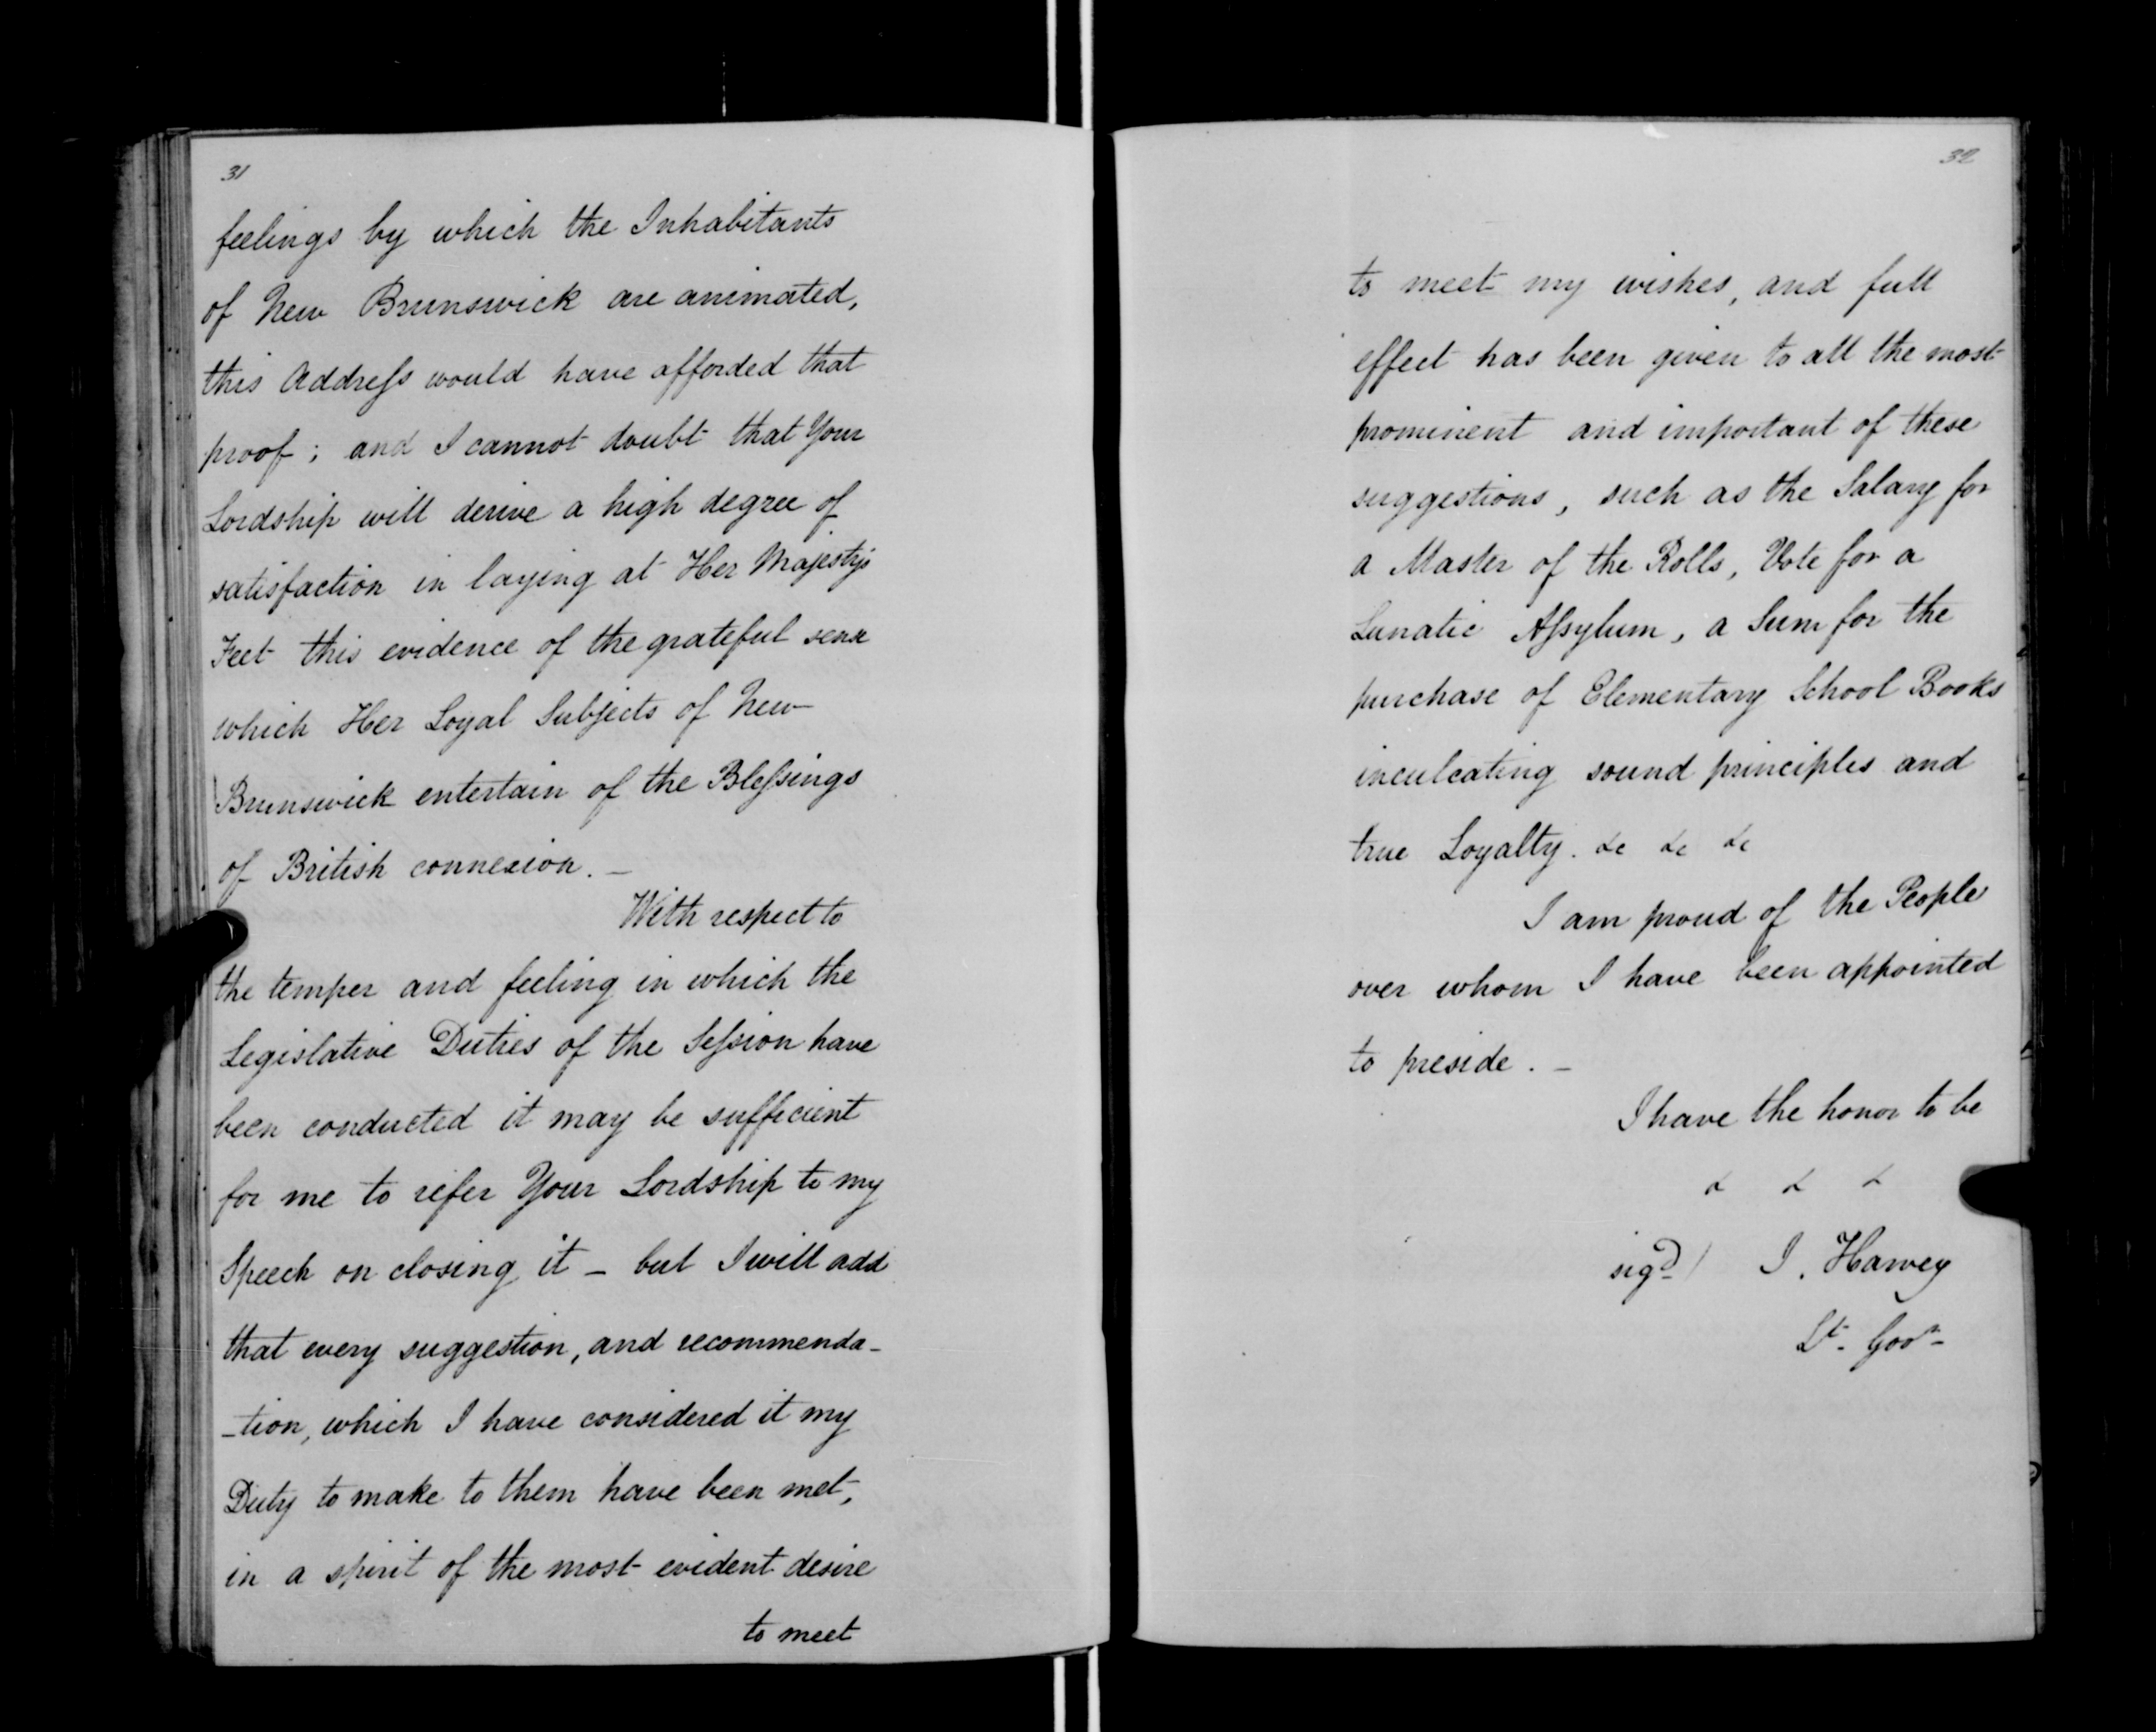 31
feelings by which the Inhabitants
of New Brunswick are animated,
this Addreſs would have afforded that
proof; and I cannot doubt that Your
Lordship will derive a high degree of
satisfaction in laying at Her Majesty's
Feet this evidence of the grateful sense
which Her Loyal Subjects of New
Brunswick entertain of the Bleſsings
of British connexion. _
With respect to
the temper and feeling in which the
Legislative Duties of the Seſsion have
been conducted it may be sufficient
for me to refer Your Lordship to my
Speech on closing it _ but I will add
that every suggestion, and recommenda_
_tion, which I have considered it my
Duty to make to them have been met,
in a spirit of the most evident desire
to meet
32
to meet my wishes, and full
effect has been given to all the most
prominent and important of these
suggestions, such as the Salary for
a Master of the Rolls, Vote for a
Lunatic Aſsylum, a Sum for the
purchase of Elementary School Books
inculcating sound principles and
true Loyalty. &c &c &c
I am proud of the People
over whom I have been appointed
to preside. _
I have the honor to be
& & &
sigd / J. Harvey
Lt. Govr